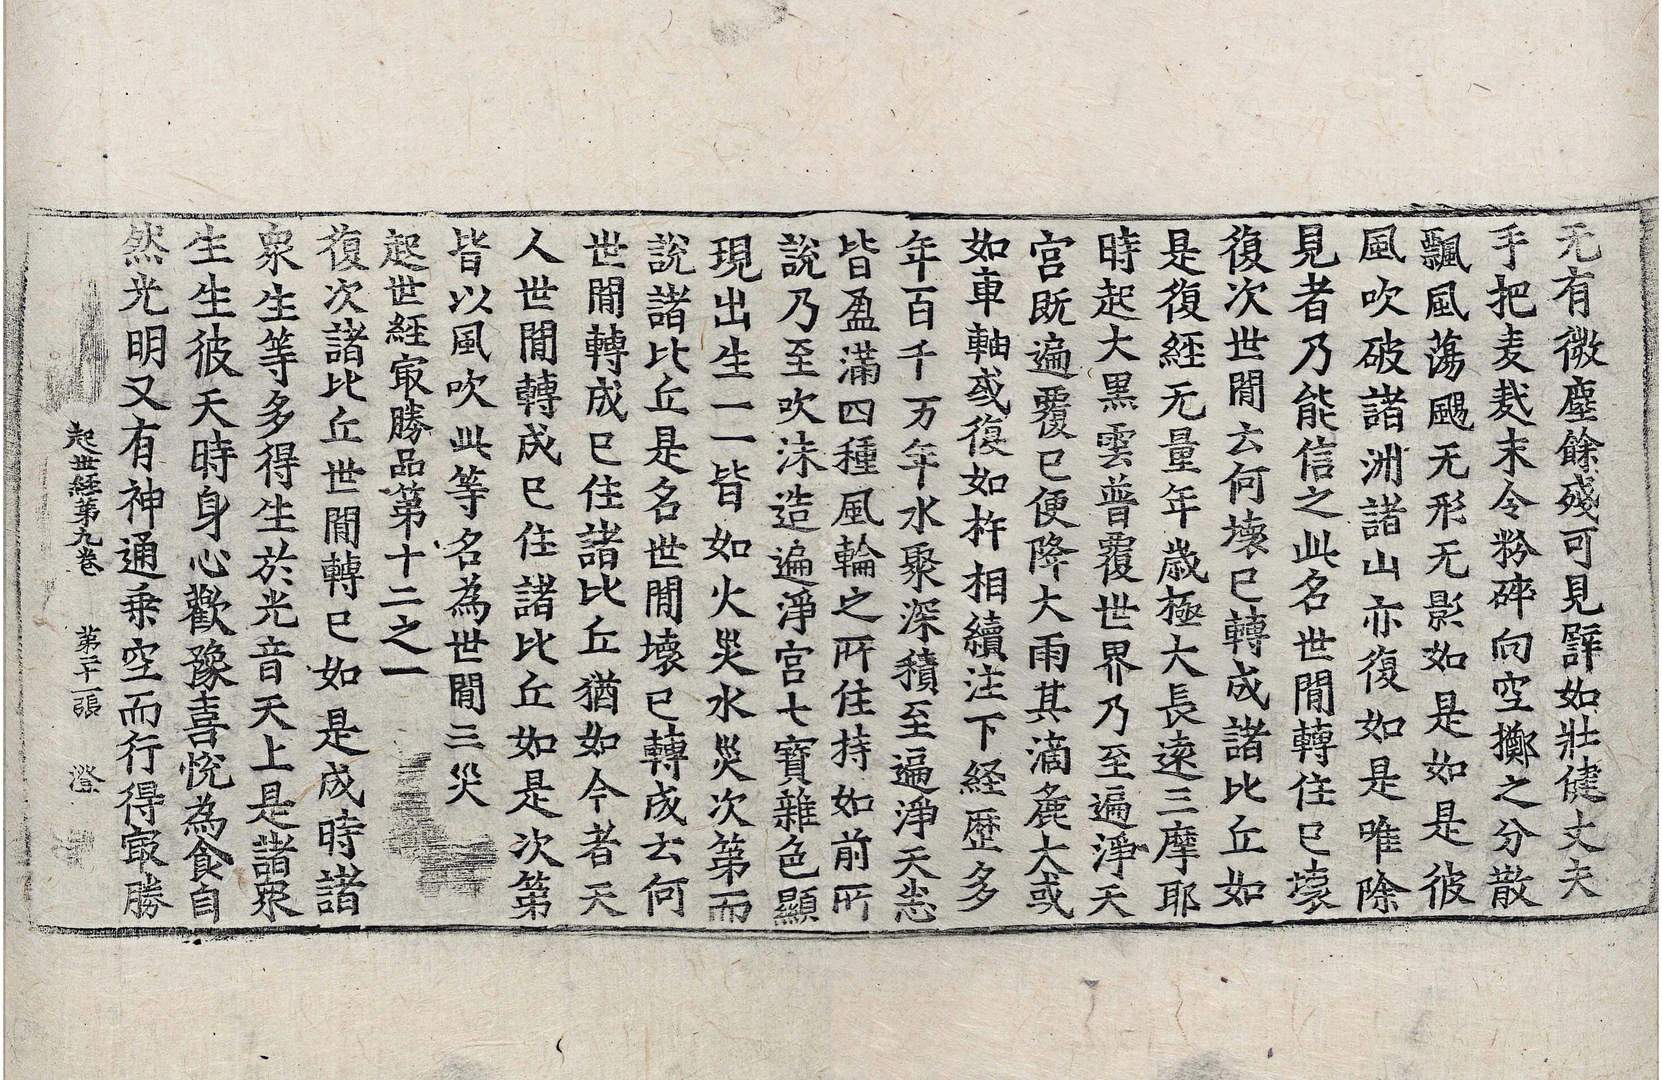 无有微塵餘殘可見譬如壯健丈夫
手把麦麸末令粉碎向空擲之分散
飄風蕩颺无形无影如是如是彼
風吹破諸洲諸山亦復如是唯除
見者乃能信之此名世間轉住已壞
復次世間云何壞已轉成諸比丘如
是復經无量年歲極大長遠三摩耶
時起大黑雲普覆世界乃至遍淨天
宮既遍覆已便降大雨其滴麁大或
如車軸或復如杵相續注下経歷多
年百千万年水聚深積至遍淨天悉
皆盈滿四種風輪之所住持如前所
說乃至吹沫造遍淨宮七寶雜色顯
現出生一一皆如火災水災次第而
說諸比丘是名世間壞已轉成云何
世間轉成已住諸比丘猶如今者天
人世間轉成已住諸比丘如是次第
皆以風吹此等名為世間三災
起世経㝡勝品第十二之一
復次諸比丘世間轉已如是成時諸
衆生等多得生於光音天上是諸衆
生生彼天時身心歡豫喜悅為食自
然光明又有神通乗空而行得㝡勝
起世経第九卷 第二十一張 澄